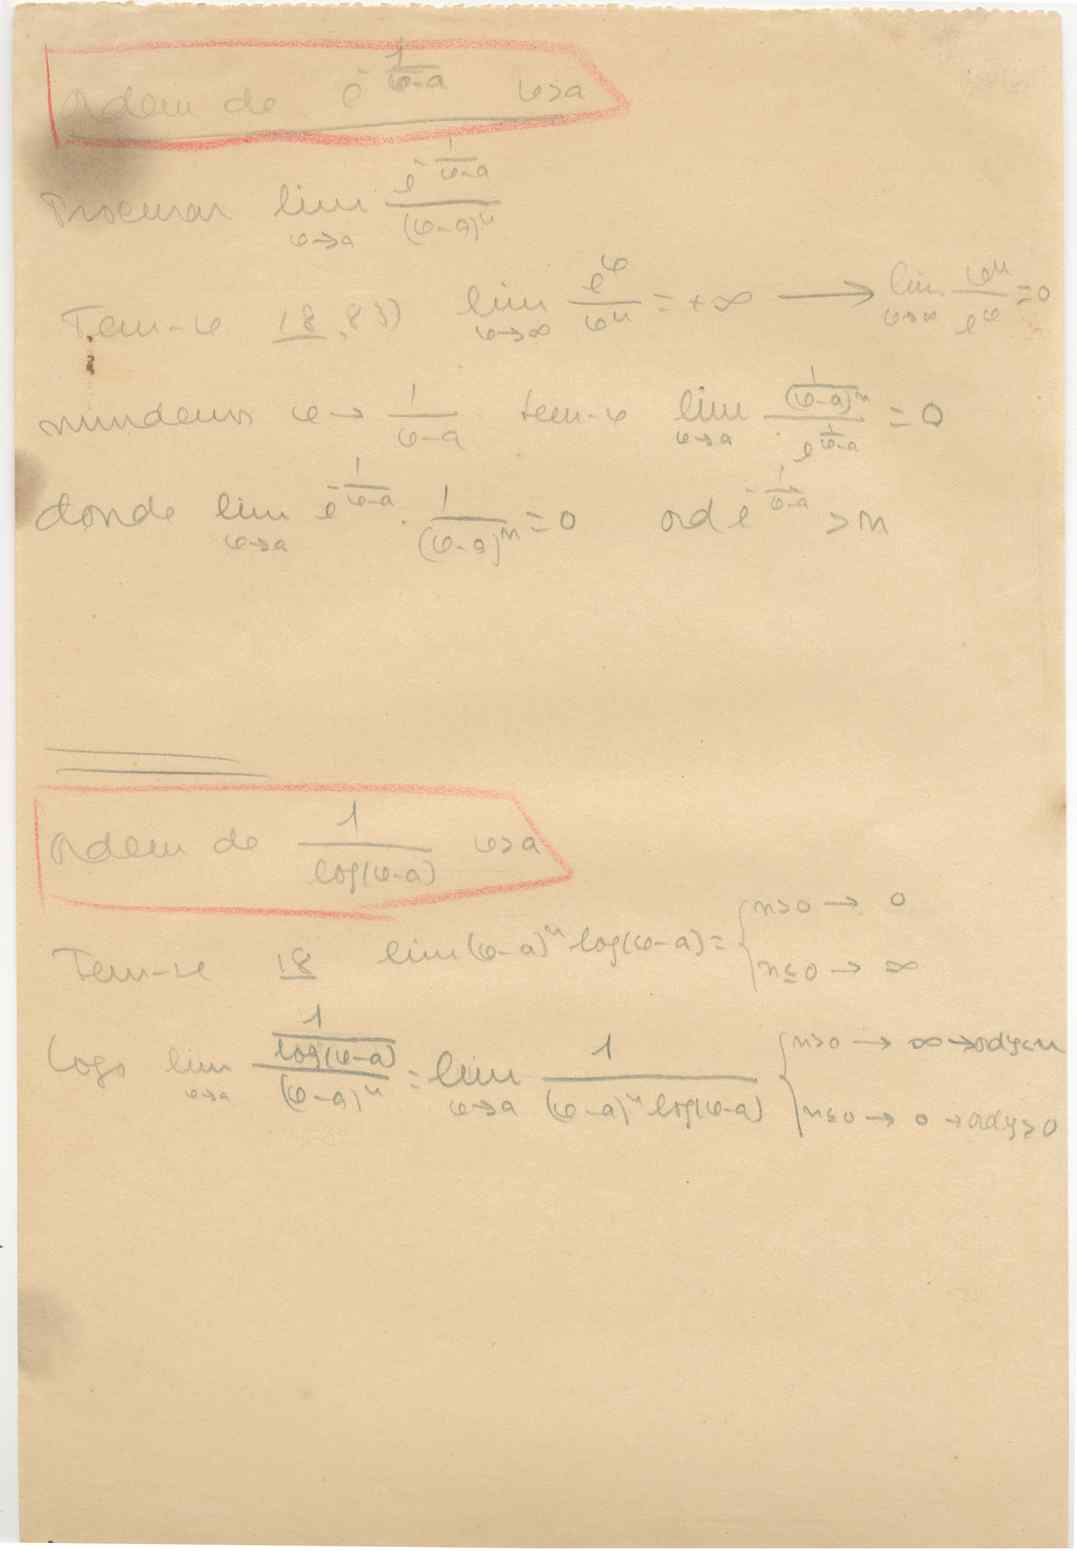 Ordem de e^{-\frac{1}{x-a}} x>a
Procurar lim_{x→a} \frac{e^{-\frac{1}{x-a}}}{(x-a)^n}
Tem-se 18, 83) lim_{x→∞} \frac{e^x}{x^n} = +∞ ⟶ lim_{x→∞} \frac{x^n}{e^x} = 0
mudemos x → \frac{1}{x-a} tem-se lim_{x→a} \frac{\frac{1}{(x-a)^n}}{e^{\frac{1}{x-a}}} = 0
donde lim_{x→a} e^{-\frac{1}{x-a}} . \frac{1}{(x-a)^n} = 0 ord e^{-\frac{1}{x-a}} > n
Ordem de \frac{1}{log(x-a)} x>a
Tem-se 18 lim (x-a)^n log(x-a) = { n>0 → 0
n≤0 → ∞
Logo lim_{x→a} \frac{\frac{1}{log(x-a)}}{(x-a)^n} = lim_{x→a} \frac{1}{(x-a)^n log(x-a)} { n>0 → ∞ → ord y<n
n≤0 → 0 → ord y>0